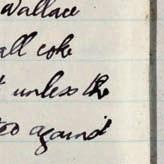 Wallace
all coke
unless the
against